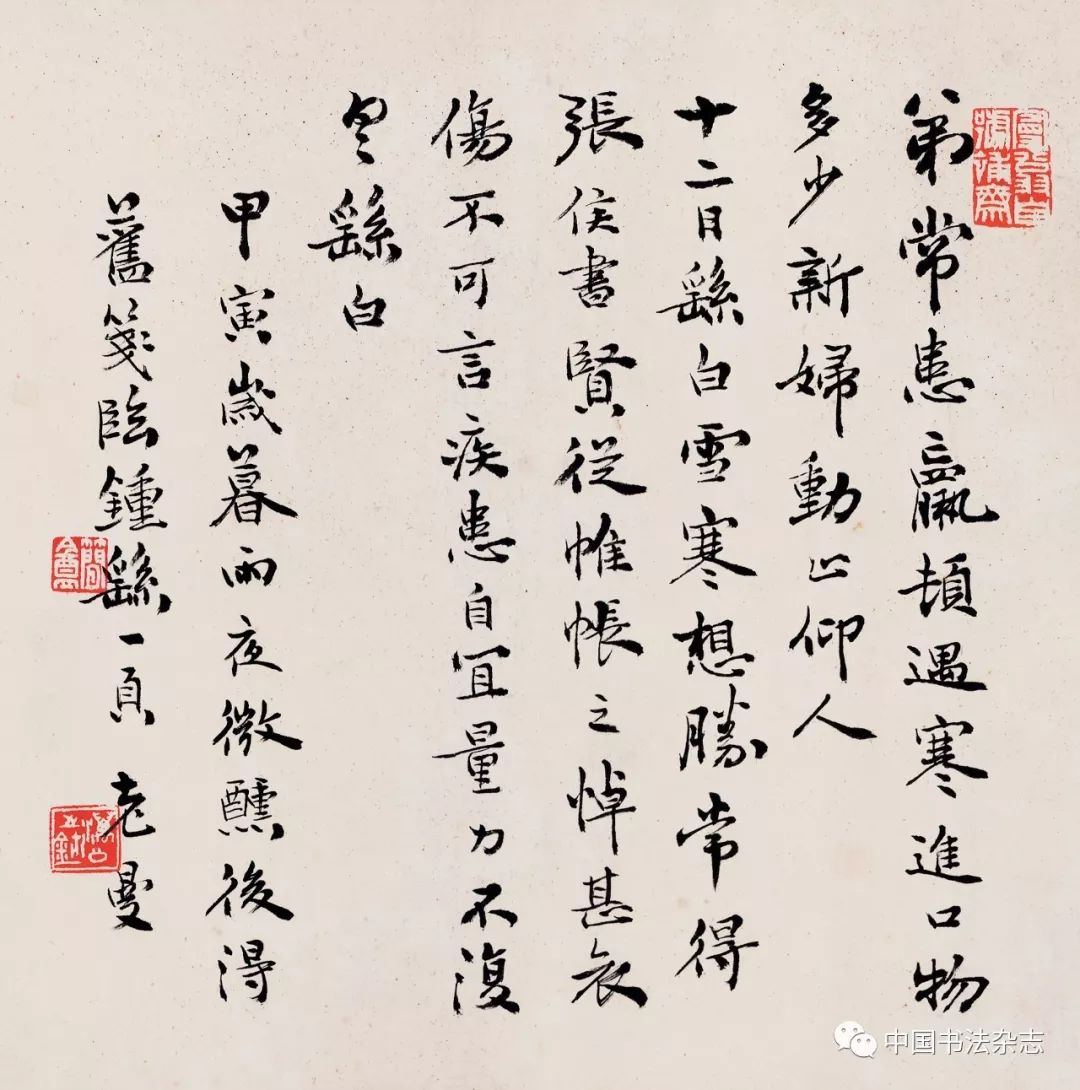 弟常患羸頓遇寒進口物
多少新婦動止仰人
十二月繇白雪寒想勝常得
張侯書賢從帷帳之悼甚哀
傷不可言疾患自宜量力不復
具繇白
甲寅歲暮雨夜微醺後得
舊箋臨鍾繇一頁 老曼
中国书法杂志